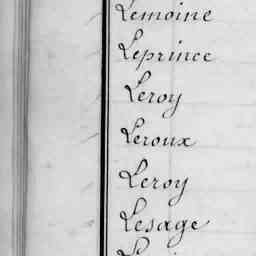 Lemoine
Leprince
Leroy
Leroux
Leroy
Lesage